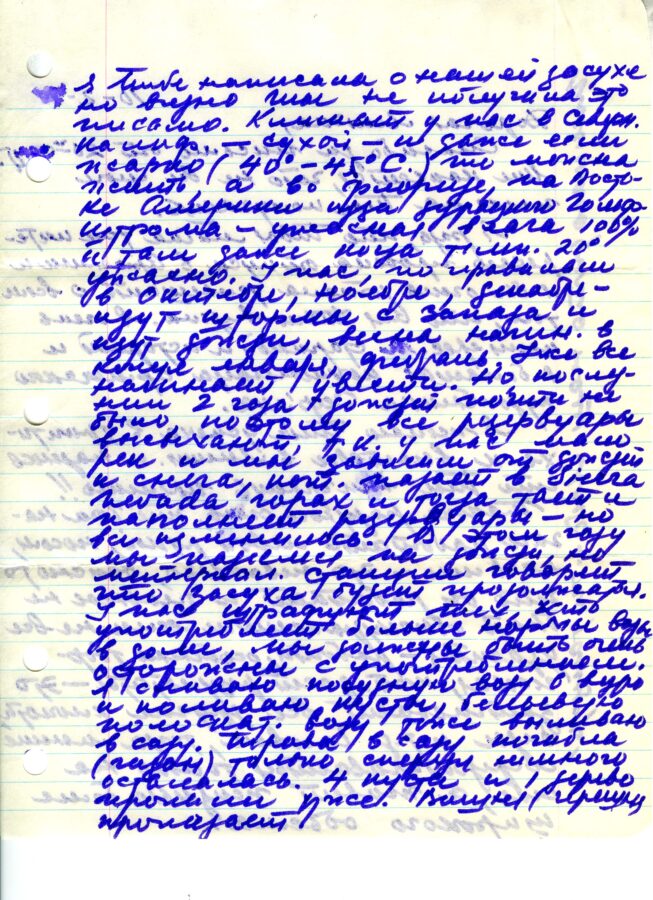 Я Тебе написала о нашей засухе
но видно Ты не получила это
письмо. Климат у нас в
калиф. — сухой — и даже если
жарко (40° – 45° С.) то можна
жить, а во Флориде, на Восто-
ке Америки из за Гольф-
штрома – ужасная влага 100%
и там даже когда темп. 20°
ужасно. У нас, по правилам
в Октябре, Ноябре, Декабре –
идут штормы с запада и
идут дожди, весна начин. в
конце января, февраль уже все
начинает цвести. Но послед-
нии 2 года дождей почти не
было, поэтому все резервуары
высыхают, т.к. у нас мало
рек и мы зависим от дождей
и снега, кот. падает в Sierra
Nevada, горах и тогда тает и
наполняет резервуары – но
все изменилось. В этом году
мы надеемся на дожди, но
станции говорят
что засуха будет продолжаться.
У нас штрафуют тех, кто
употребляет больше нормы воды
в доме, мы должны быть очень
осторожны с употреблением.
Я сливаю посудную воду в ведро
и поливаю кусты, бельевую
полоскат. воду тоже выливаю
в сад. Трава в саду погибла
(газон) только спереди немного
осталась. 4 куста и 1 дерево
пропали уже. Вишня
пропадает